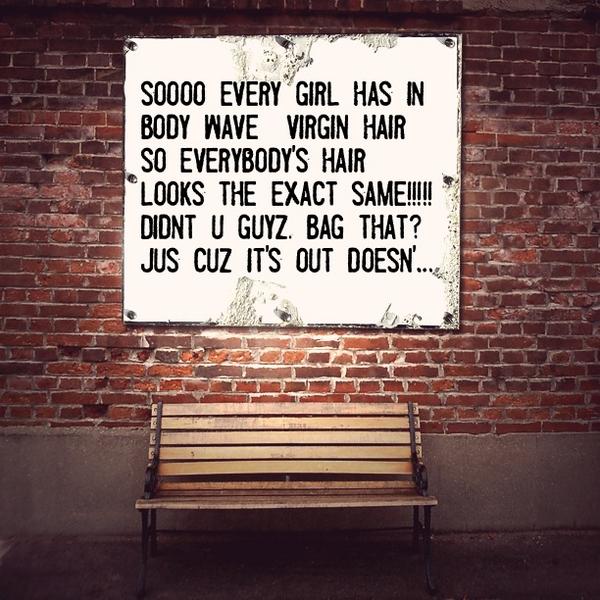 SOOOO EVERY GIRL HAS IN
BODY WAVE VIRGIN HAIR
SO EVERYBODY'S HAIR
LOOKS THE EXACT SAME!!!!!
DIDNT U GUYZ. BAG THAT?
JUS CUZ IT'S OUT DOESN'...